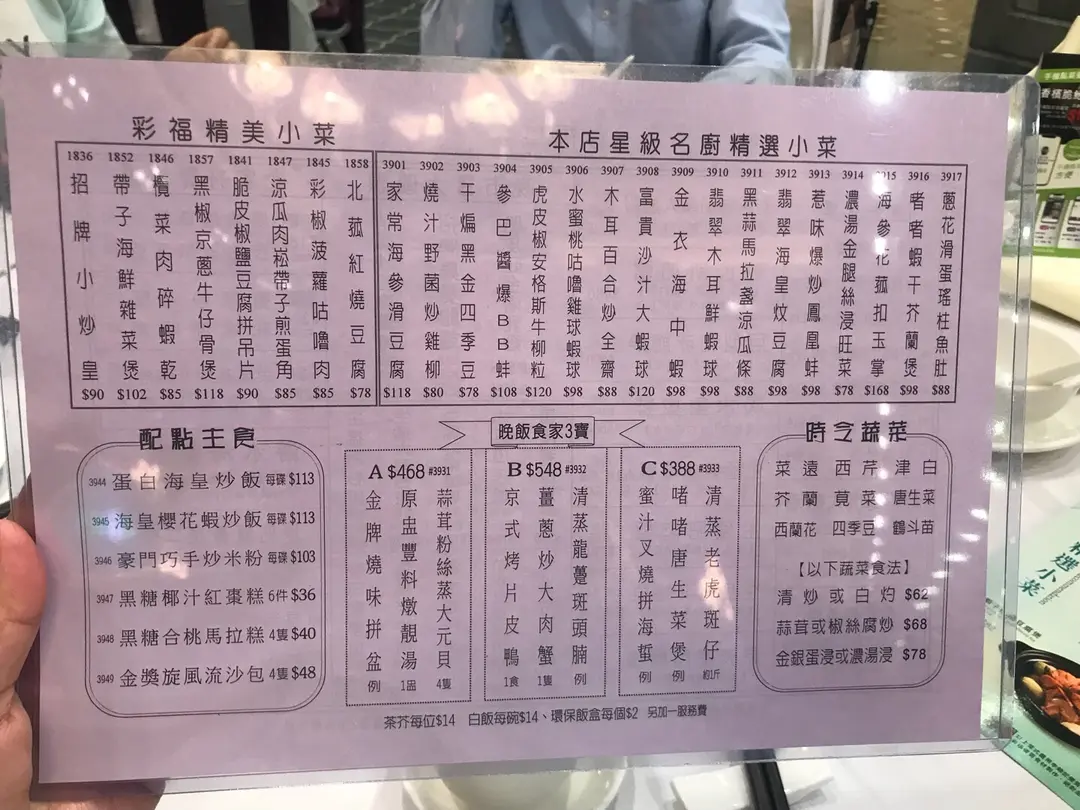 彩福精美小菜
1836 招牌小炒皇 $90
1852 帶子海鮮雜菜煲 $102
1846 欖菜肉碎蝦乾 $85
1857 黑椒京蔥牛仔骨煲 $118
1841 脆皮椒鹽豆腐拼吊片 $90
1847 涼瓜肉崧帶子煎蛋角 $85
1845 彩椒菠蘿咕嚕肉 $85
1858 北菰紅燒豆腐 $78
本店星級名廚精選小菜
3901 家常海參滑豆腐 $118
3902 燒汁野菌炒雞柳 $80
3903 干煸黑金四季豆 $78
3904 參巴醬爆BB蚌 $108
3905 虎皮椒安格斯牛柳粒 $120
3906 水蜜桃咕嚕雞球蝦球 $98
3907 木耳百合炒全齋 $88
3908 富貴沙汁大蝦球 $120
3909 金衣海中蝦 $98
3910 翡翠木耳鮮蝦球 $98
3911 黑蒜馬拉盞涼瓜條 $88
3912 翡翠海皇炆豆腐 $98
3913 惹味爆炒鳳凰蚌 $98
3914 濃湯金腿絲浸旺菜 $78
3915 海參花菰扣玉掌 $168
3916 者者蝦干芥蘭煲 $98
3917 蔥花滑蛋瑤柱魚肚 $88
配點主食
3944 蛋白海皇炒飯 每碟 $113
3945 海皇櫻花蝦炒飯 每碟 $113
3946 豪門巧手炒米粉 每碟 $103
3947 黑糖椰汁紅棗糕 6件 $36
3948 黑糖合桃馬拉糕 4隻 $40
3949 金獎旋風流沙包 4隻 $48
晚飯食家3寶
A $468 #3931
蒜茸粉絲蒸大元貝 4隻
原盅豐料燉靚湯 1盅
金牌燒味拼盆 例
B $548 #3932
清蒸龍躉斑頭腩 例
薑蔥炒大肉蟹 1隻
京式烤片皮鴨 1食
C $388 #3933
清蒸老虎斑仔 約1斤
啫啫唐生菜煲 例
蜜汁叉燒拼海蜇 例
時令蔬菜
菜遠 西芹 津白
芥蘭 莧菜 唐生菜
西蘭花 四季豆 鶴斗苗
【以下蔬菜食法】
清炒或白灼 $62
蒜茸或椒絲腐炒 $68
金銀蛋浸或濃湯浸 $78
茶芥每位$14 白飯每碗$14、環保飯盒每個$2 另加一服務費
精選小菜